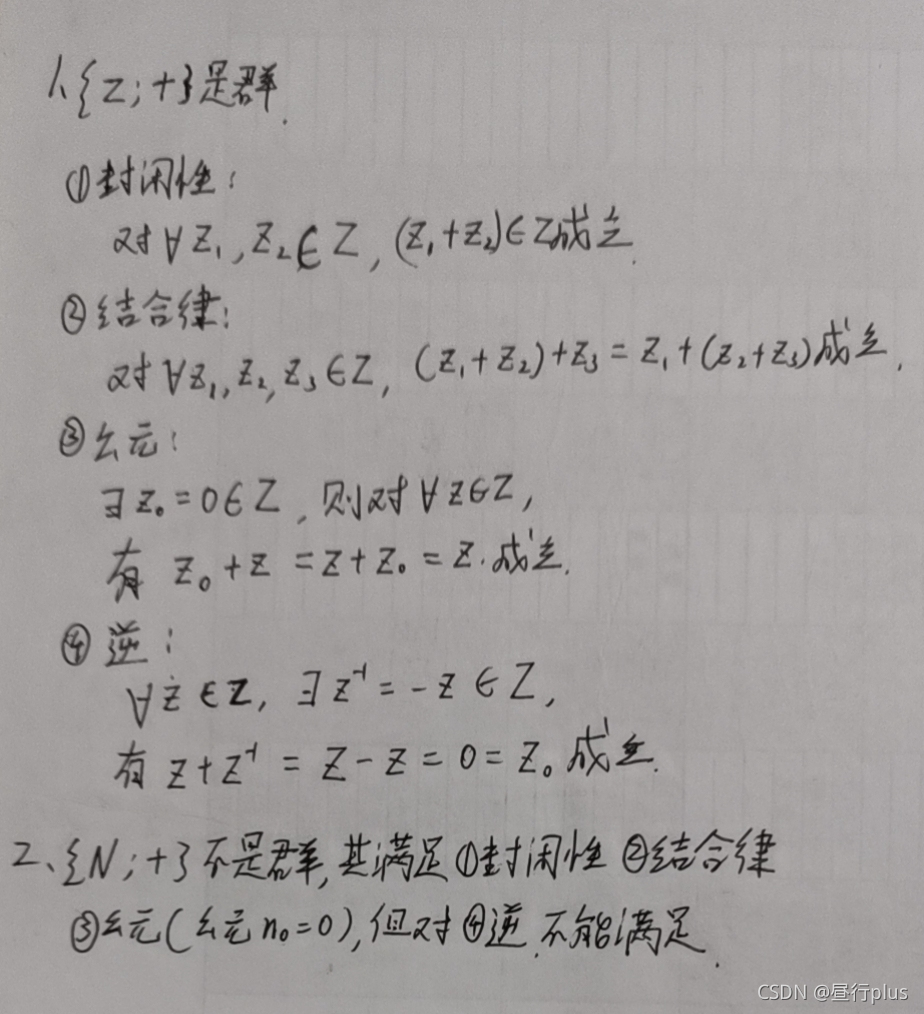 1、{Z;+}是群.
①封闭性:
对∀Z₁,Z₂∈Z,(Z₁+Z₂)∈Z成立.
②结合律:
对∀Z₁,Z₂,Z₃∈Z,(Z₁+Z₂)+Z₃=Z₁+(Z₂+Z₃)成立.
③幺元:
∃Z₀=0∈Z,则对∀Z∈Z,
有 Z₀+Z=Z+Z₀=Z.成立.
④逆:
∀Z∈Z,∃Z⁻¹=-Z∈Z,
有 Z+Z⁻¹=Z-Z=0=Z₀成立.
2、{N;+}不是群,其满足①封闭性②结合律
③幺元(幺元n₀=0),但对④逆不能满足.
CSDN @昼行plus